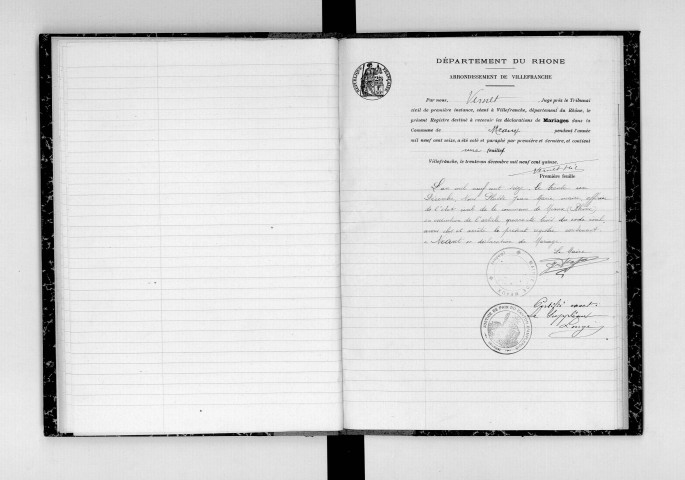 DÉPARTEMENT DU RHONE
ARRONDISSEMENT DE VILLEFRANCHE
Par nous, Vernet, Juge près le Tribunal
civil de première instance, séant à Villefranche, département du Rhône, le
présent Registre destiné à recevoir les déclarations de Mariages dans la
Commune de pendant l'année
mil neuf cent seize, a été coté et paraphé par première et dernière, et contient
une feuillet
Villefranche, le trente-un décembre mil neuf cent quinze.
Première feuille
L'an mil neuf cent seize, le trente un
Décembre, Nous Jean Marie maire, officier
de l'état civil de la commune de (Rhône)
en exécution de l'article quarante trois du code civil,
avons clos et arrêté le présent registre contenant
" Néant " déclaration de Mariage
Le Maire
Certifié exact
Le Suppléant